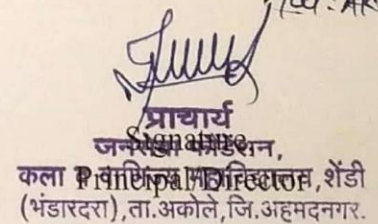 प्राचार्य
Signature
फाउंडेशन,
कला व वाणिज्य महाविद्यालय, शेंडी
Principal/Director
(भंडारदरा), ता.अकोले, जि.अहमदनगर.